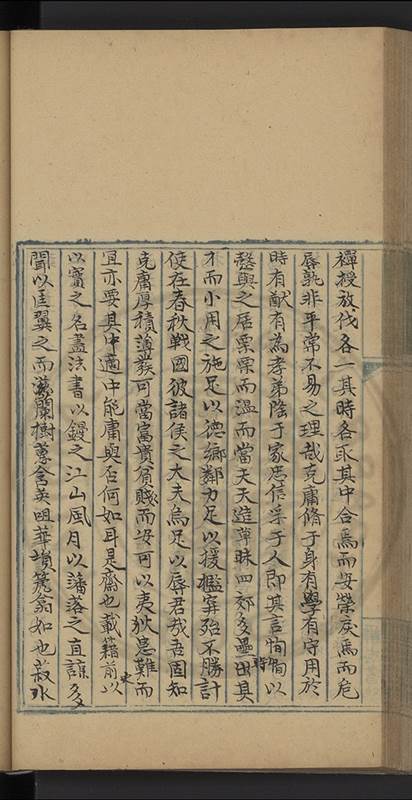 禪授放伐各一其時各取其中合焉而安榮戾焉而危
辱孰非平常不易之理哉克庸脩于身有學有守用於
時有猷有為孝弟隆于家忠信孚于人即其言恂恂以
與之居栗栗而溫而當天天造草昧四郊多壘田其
才而小用之施足以德鄉鄰力足以援檻穽殆不勝計
使在春秋戰國彼諸侯之大夫烏足以辱君哉吾固知
克庸厚積富貴貧賤而安可以夷狄患難而
宜亦要其中適中能庸與否何如耳是齋也載籍前以
史
以實之名畫法書以鏝之江山風月以藩落之直諒多
聞以匡翼之而蘭樹蕙含英咀華塤篪翕如也菽水